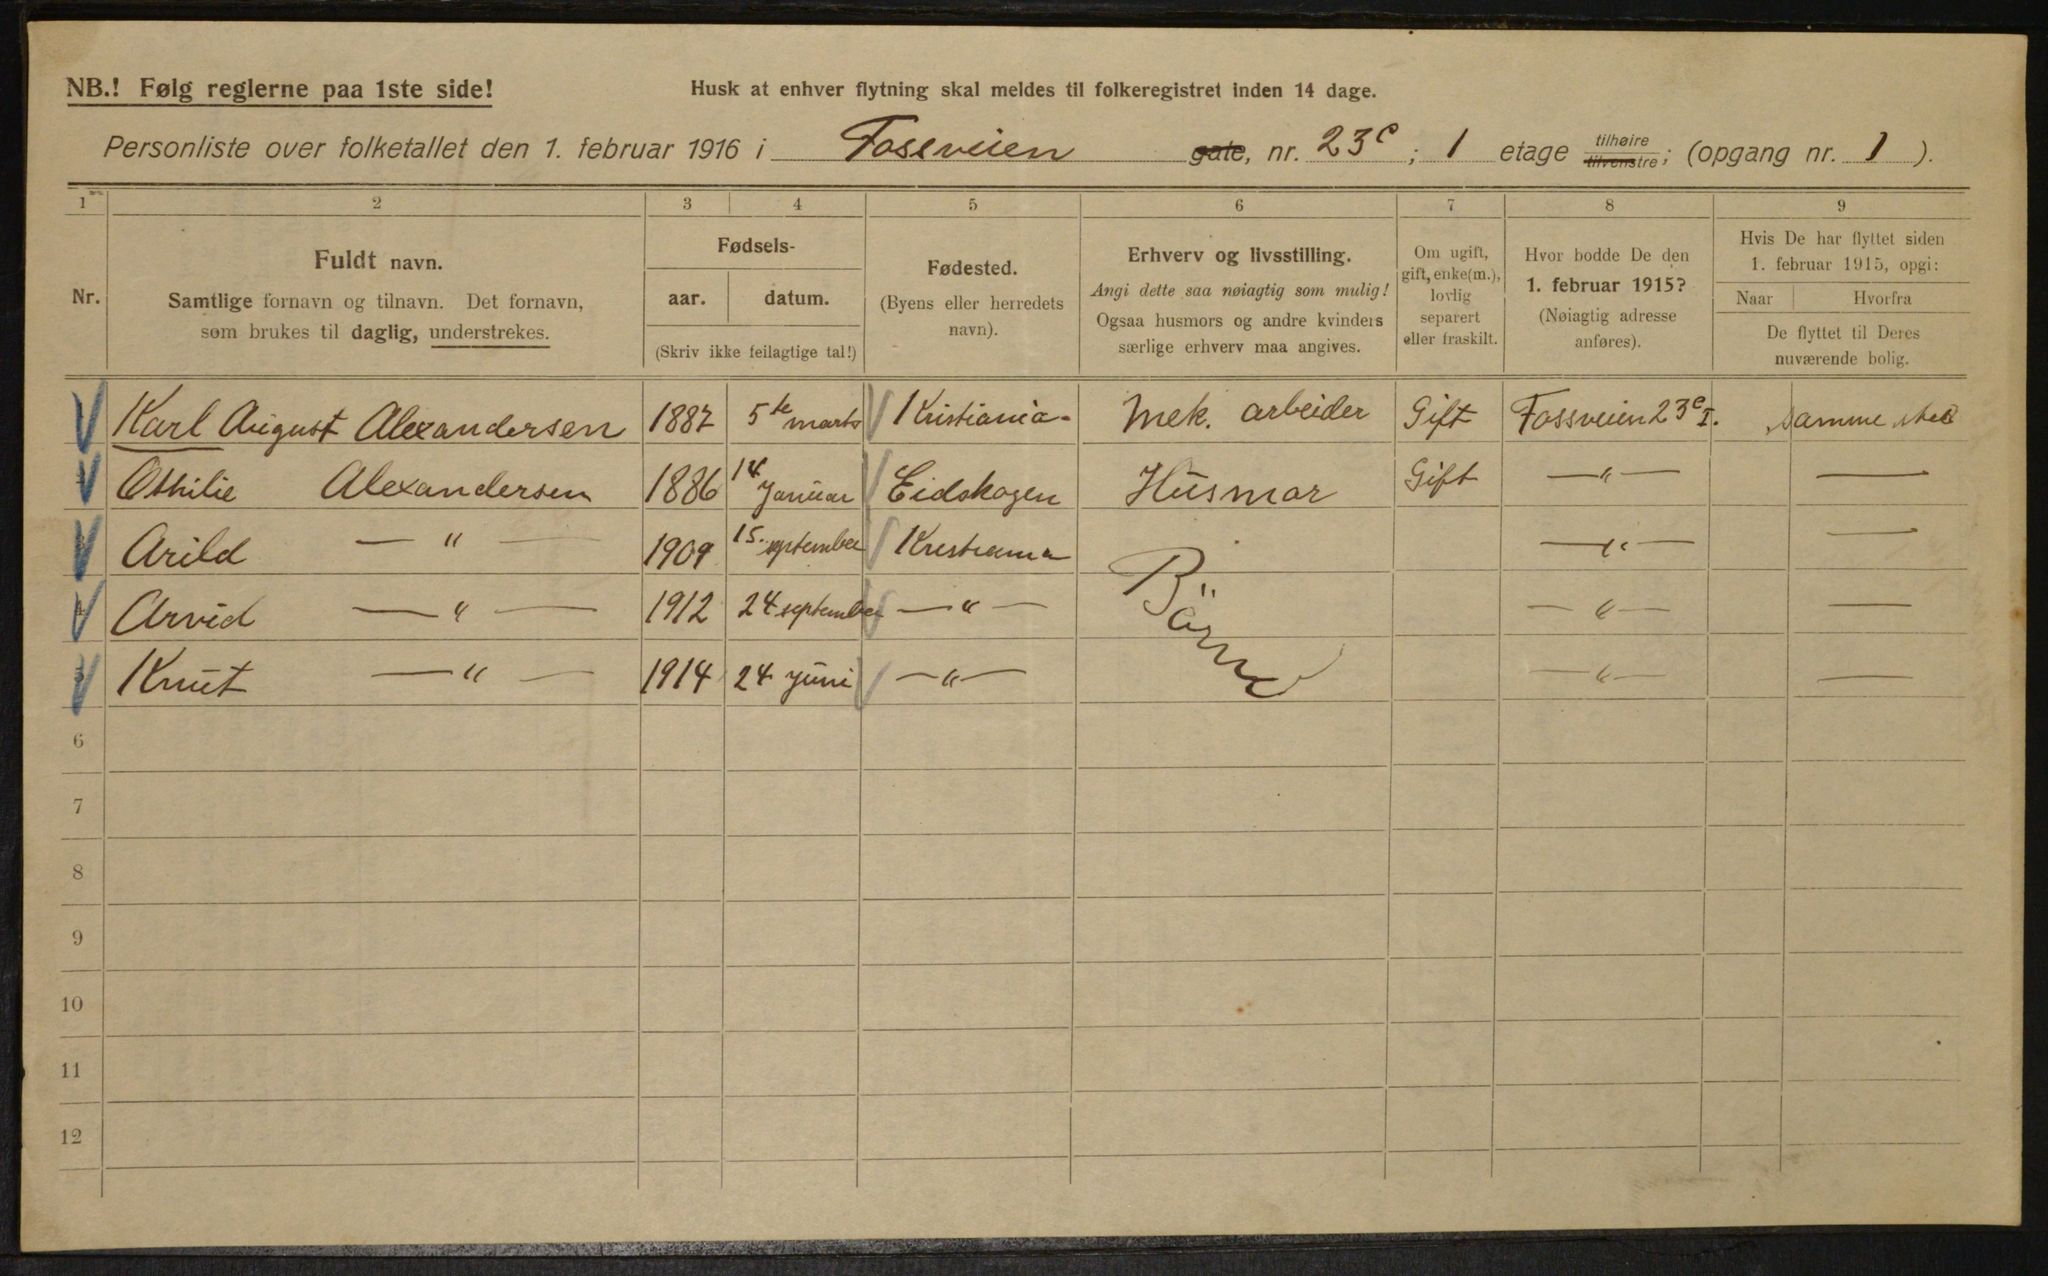 NB.! Følg reglerne paa 1ste side!
Husk at enhver flytning skal meldes til folkeregistret inden 14 dage.
Personliste over folketallet den 1. februar 1916 i Fossveien gate, nr. 23c ; 1 etage tilhøire tilvenstre; (opgang nr. 1 ).
1 2 3 4 5 6 7 8 9
Nr.
Fuldt navn.
Samtlige fornavn og tilnavn. Det fornavn,
som brukes til daglig, understrekes.
Fødsels-
aar. datum.
(Skriv ikke feilagtige tal!)
Fødested.
(Byens eller herredets
navn).
Erhverv og livsstilling.
Angi dette saa nøiagtig som mulig!
Ogsaa husmors og andre kvinders
særlige erhverv maa angives.
Om ugift,
gift, enke(m.),
lovlig
separert
eller fraskilt.
Hvor bodde De den
1. februar 1915?
(Nøiagtig adresse
anføres).
Hvis De har flyttet siden
1. februar 1915, opgi:
Naar Hvorfra
De flyttet til Deres
nuværende bolig.
Karl August Alexandersen 1887 5te marts Kristiania Mek. arbeider Gift Fossveien 23c I. samme sted
Othilie Alexandersen 1886 14 Januar Eidskogen Husmor Gift — " — —
Arild — " — 1909 15. september Kristiania — " — —
Arvid — " — 1912 24 september — " — Börn — " — —
Knut — " — 1914 24 Juni — " — — " — —
6
7
8
9
10
11
12